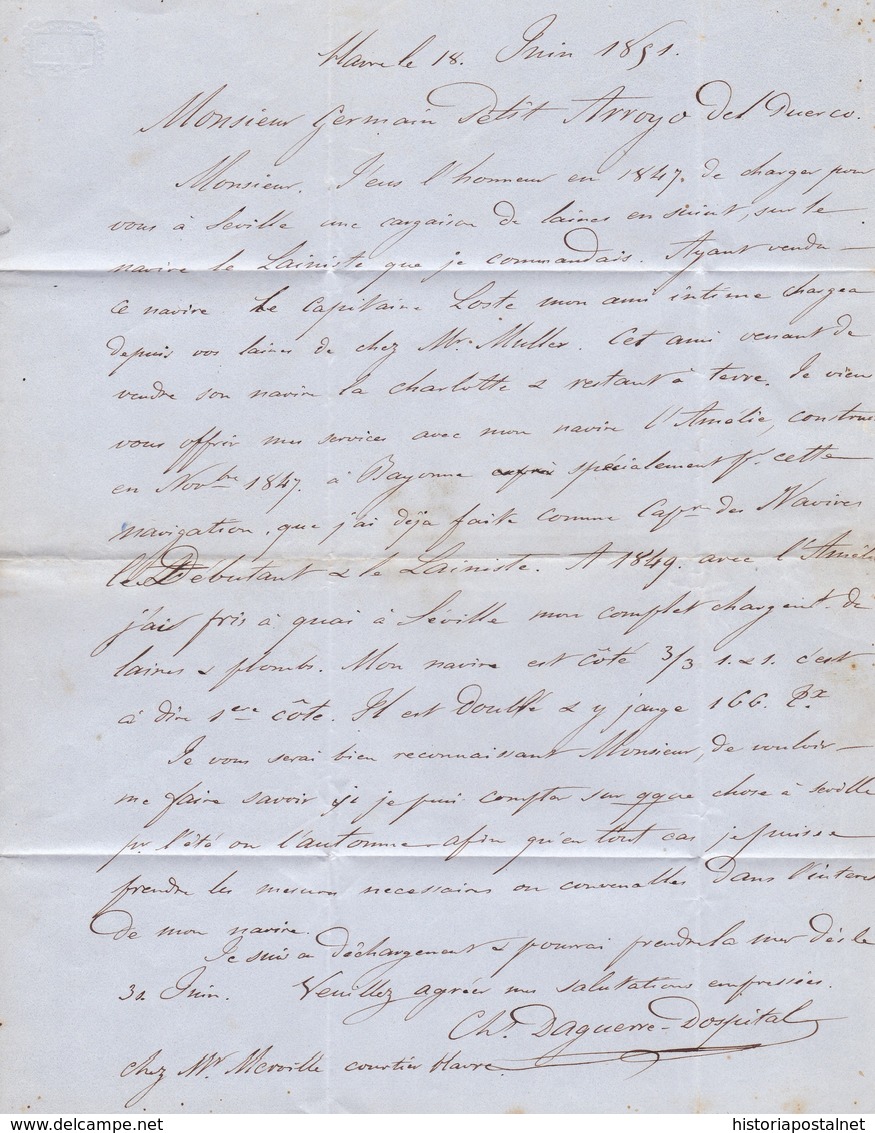 Havre le 18. Juin 1851.
Monsieur Germain Petit Arroyo Del Puerco.
Monsieur. J'eus l'honneur en 1847. de charger pour
vous à Séville une cargaison de laines en suint, sur le
navire le Lainiste que je commandais. Ayant vendu
ce navire le Capitaine Loste mon ami intime chargea
depuis vos laines de chez Mr. Muller. Cet ami venant de
vendre son navire la charlotte & restant à terre. Je vien
vous offrir mes services avec mon navire l'Amélie, construi
en Novbre 1847. à Bayonne spécialement pr. cette
navigation, que j'ai déja faite comme Capne des Navires
le Débutant & le Lainiste. A 1849. avec l'Améli
j'ai pris à quai à Séville mon complet chargent. de
laines & plombs. Mon navire est côté 3/3 1. & 1. c'est
à dire 1ere côte. Il est doublé & y jauge 166. Tx
Je vous serai bien reconnaissant Monsieur, de vouloir
me faire savoir si je puis compter sur qque chose à Séville
pr. l'été ou l'automne afin qu'en tout cas je puisse
prendre les mesures necessaires ou convenables dans l'interet
de mon navire.
Je suis en déchargement & pourrai prendre la mer dès le
30 Juin. Veuillez agréer mes salutations empressées.
Chs. Daguerre-Dospital
chez Mr. Merville courtier Havre.
historiapostalnet